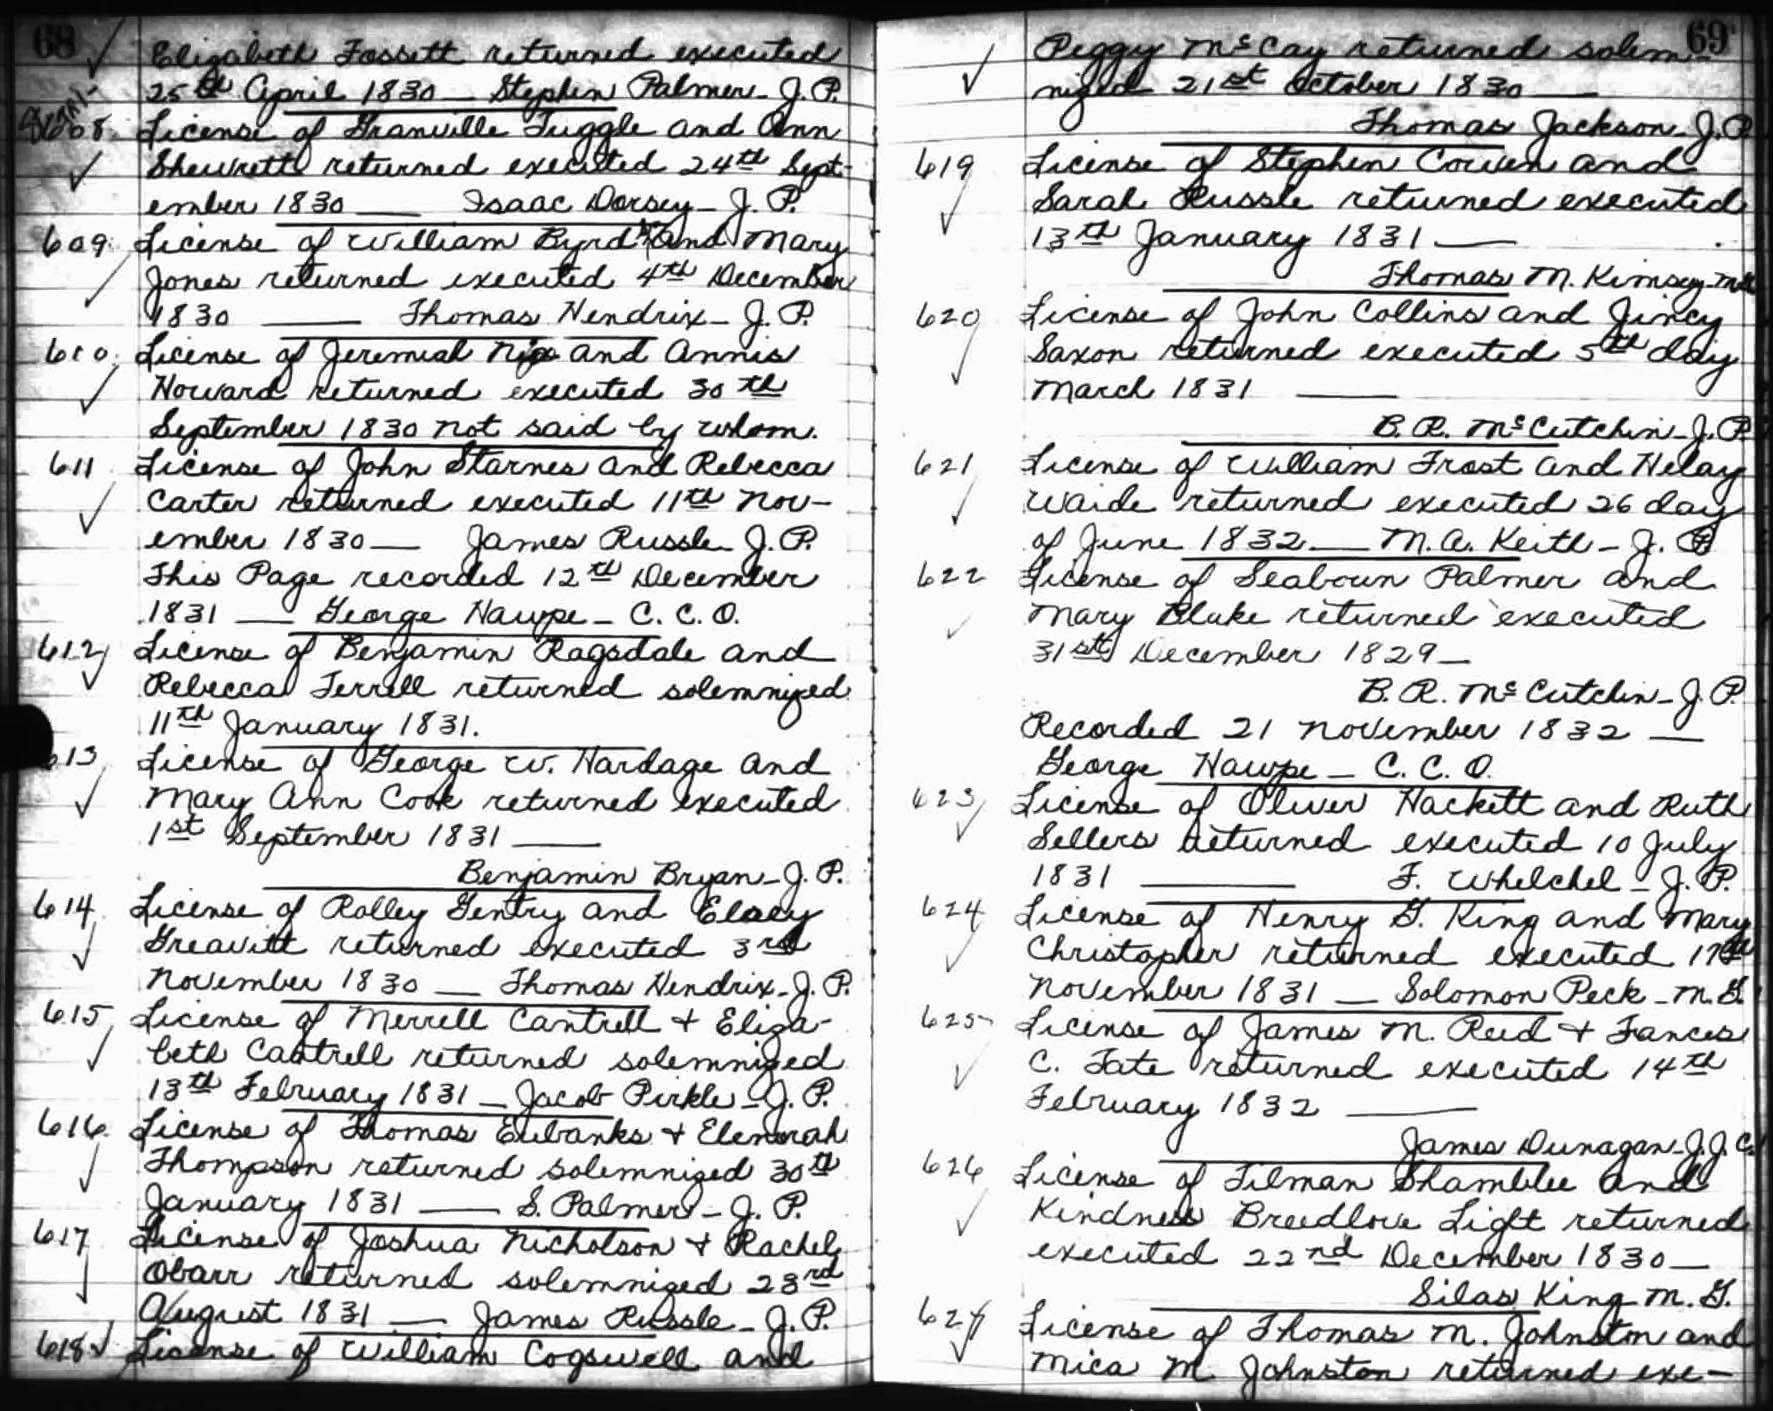 68
Elizabeth Fossett returned executed
25th April 1830 — Stephen Palmer - J. P.
608 License of Granville Tuggle and Ann
Shewrett returned executed 24th Sept-
ember 1830 — Isaac Dorsey - J. P.
609 License of William Byrd and Mary
Jones returned executed 4th December
1830 — Thomas Hendrix - J. P.
610 License of Jeremiah Nix and Annis
Howard returned executed 30th
September 1830 not said by whom.
611 License of John Starnes and Rebecca
Carter returned executed 11th Nov-
ember 1830 — James Russle - J. P.
This Page recorded 12th December
1831 — George Hawpe - C. C. O.
612 License of Benjamin Ragsdale and
Rebecca Terrell returned solemnized
11th January 1831.
613 License of George W. Hardage and
Mary Ann Cook returned executed
1st September 1831 —
Benjamin Bryan - J. P.
614 License of Rolley Gentry and Elacy
Greavitt returned executed 3rd
November 1830 — Thomas Hendrix - J. P.
615 License of Merrell Cantrell + Eliza-
beth Cantrell returned solemnized
13th February 1831 — Jacob Pirkle - J. P.
616 License of Thomas Eubanks + Elenorah
Thompson returned solemnized 30th
January 1831 — S. Palmer - J. P.
617 License of Joshua Nicholson + Rachel
Obarr returned solemnized 23rd
August 1831 — James Russle - J. P.
618 License of William Cogswell and
69
Peggy McCay returned solem-
nized 21st October 1830 —
Thomas Jackson - J. P.
619 License of Stephen Cowen and
Sarah Russle returned executed
13th January 1831 —
Thomas M. Kimsey - MG
620 License of John Collins and Jincy
Saxon returned executed 5th day
March 1831 —
B. R. McCutchin - J. P.
621 License of William Frost and Helay
Waide returned executed 26 day
of June 1832 — M. A. Keith - J. P.
622 License of Seaborn Palmer and
Mary Blake returned executed
31st December 1829 —
B. R. McCutchin - J. P.
Recorded 21 November 1832 —
George Hawpe — C. C. O.
623 License of Oliver Hackett and Ruth
Sellers returned executed 10 July
1831 — F. Whelchel - J. P.
624 License of Henry G. King and Mary
Christopher returned executed 17th
November 1831 — Solomon Peck - M. G.
625 License of James M. Reid + Fances
C. Tate returned executed 14th
February 1832 —
James Dunagan - J. J. C.
626 License of Tilman Shamblee and
Kindness Breedlove Light returned
executed 22nd December 1830 —
Silas King M. G.
627 License of Thomas M. Johnston and
Mica M. Johnston returned exe-